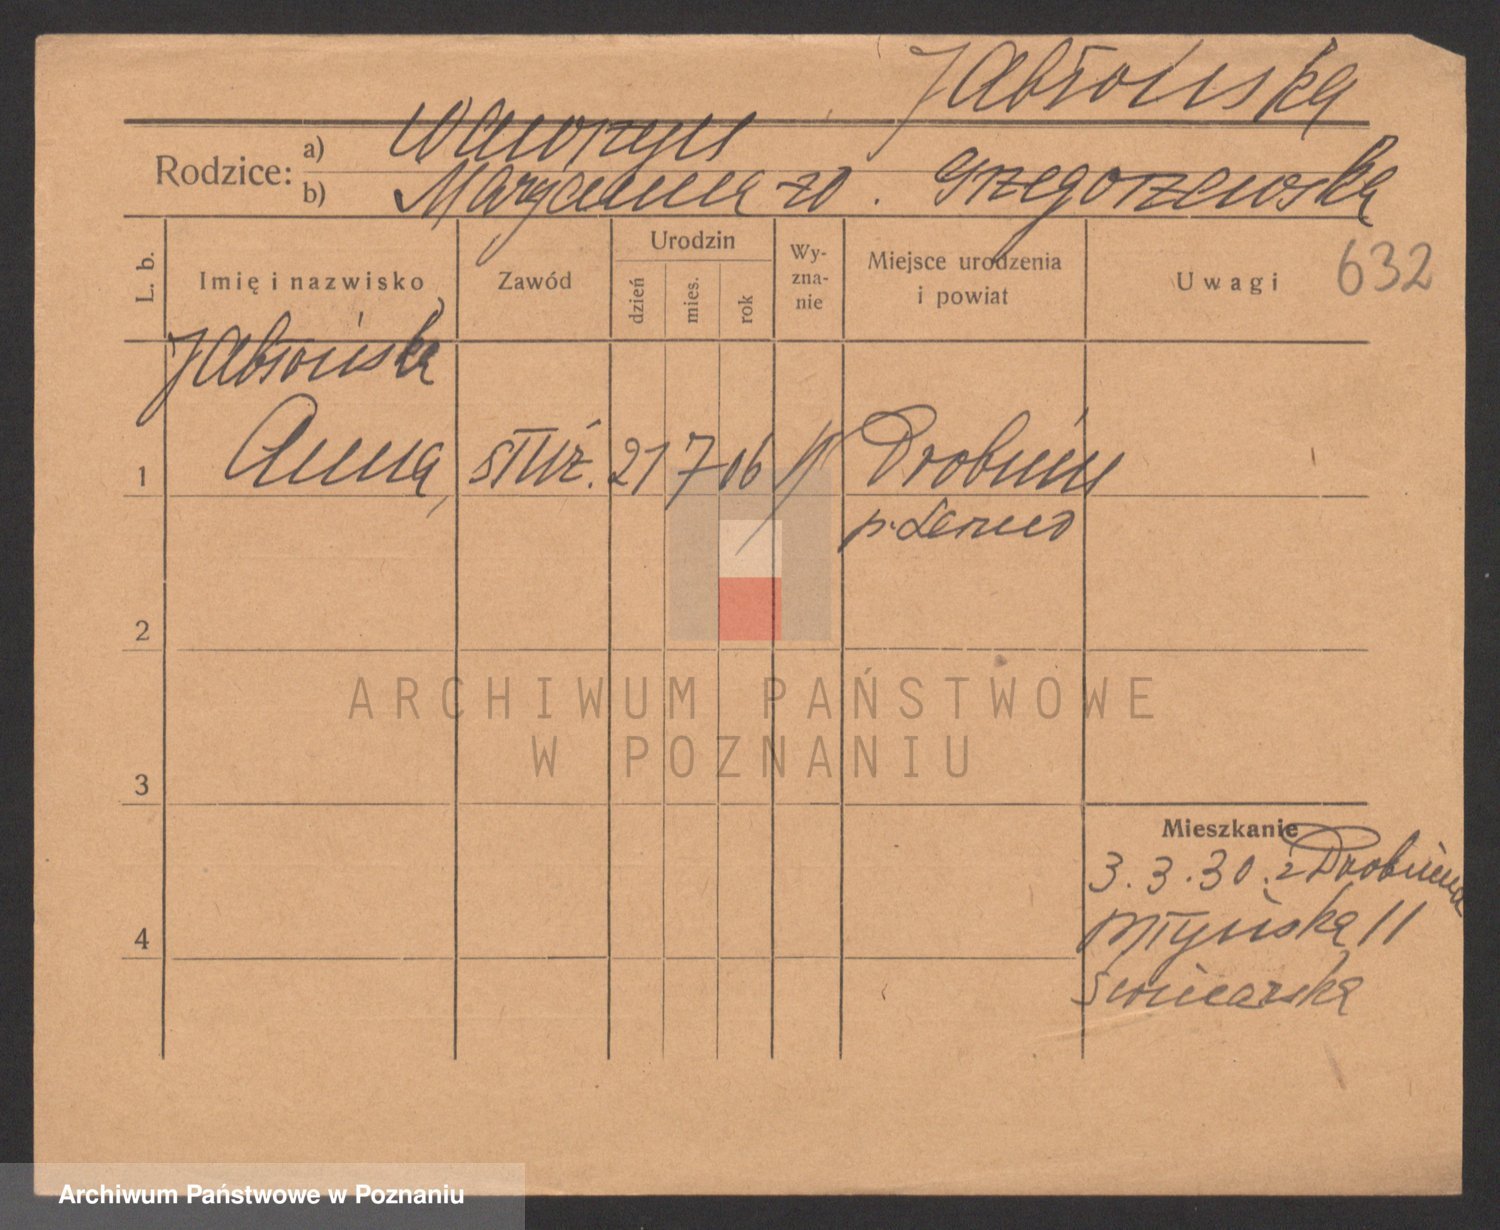 Jabłońska
Rodzice:
a) Wawrzyn
b) Maryanna zd. Grzegorzewska
632
L. b.
Imię i nazwisko
Zawód
Urodzin
dzień
mies.
rok
Wy-
zna-
nie
Miejsce urodzenia
i powiat
Uwagi
Jabłońska
1 Anna, służ. 21 7 06 Drobnin
p. Leszno
2
3
4
Mieszkanie
3.3.30. z Drobnina
Młyńska 11
ARCHIWUM PAŃSTWOWE
W POZNANIU
Archiwum Państwowe w Poznaniu